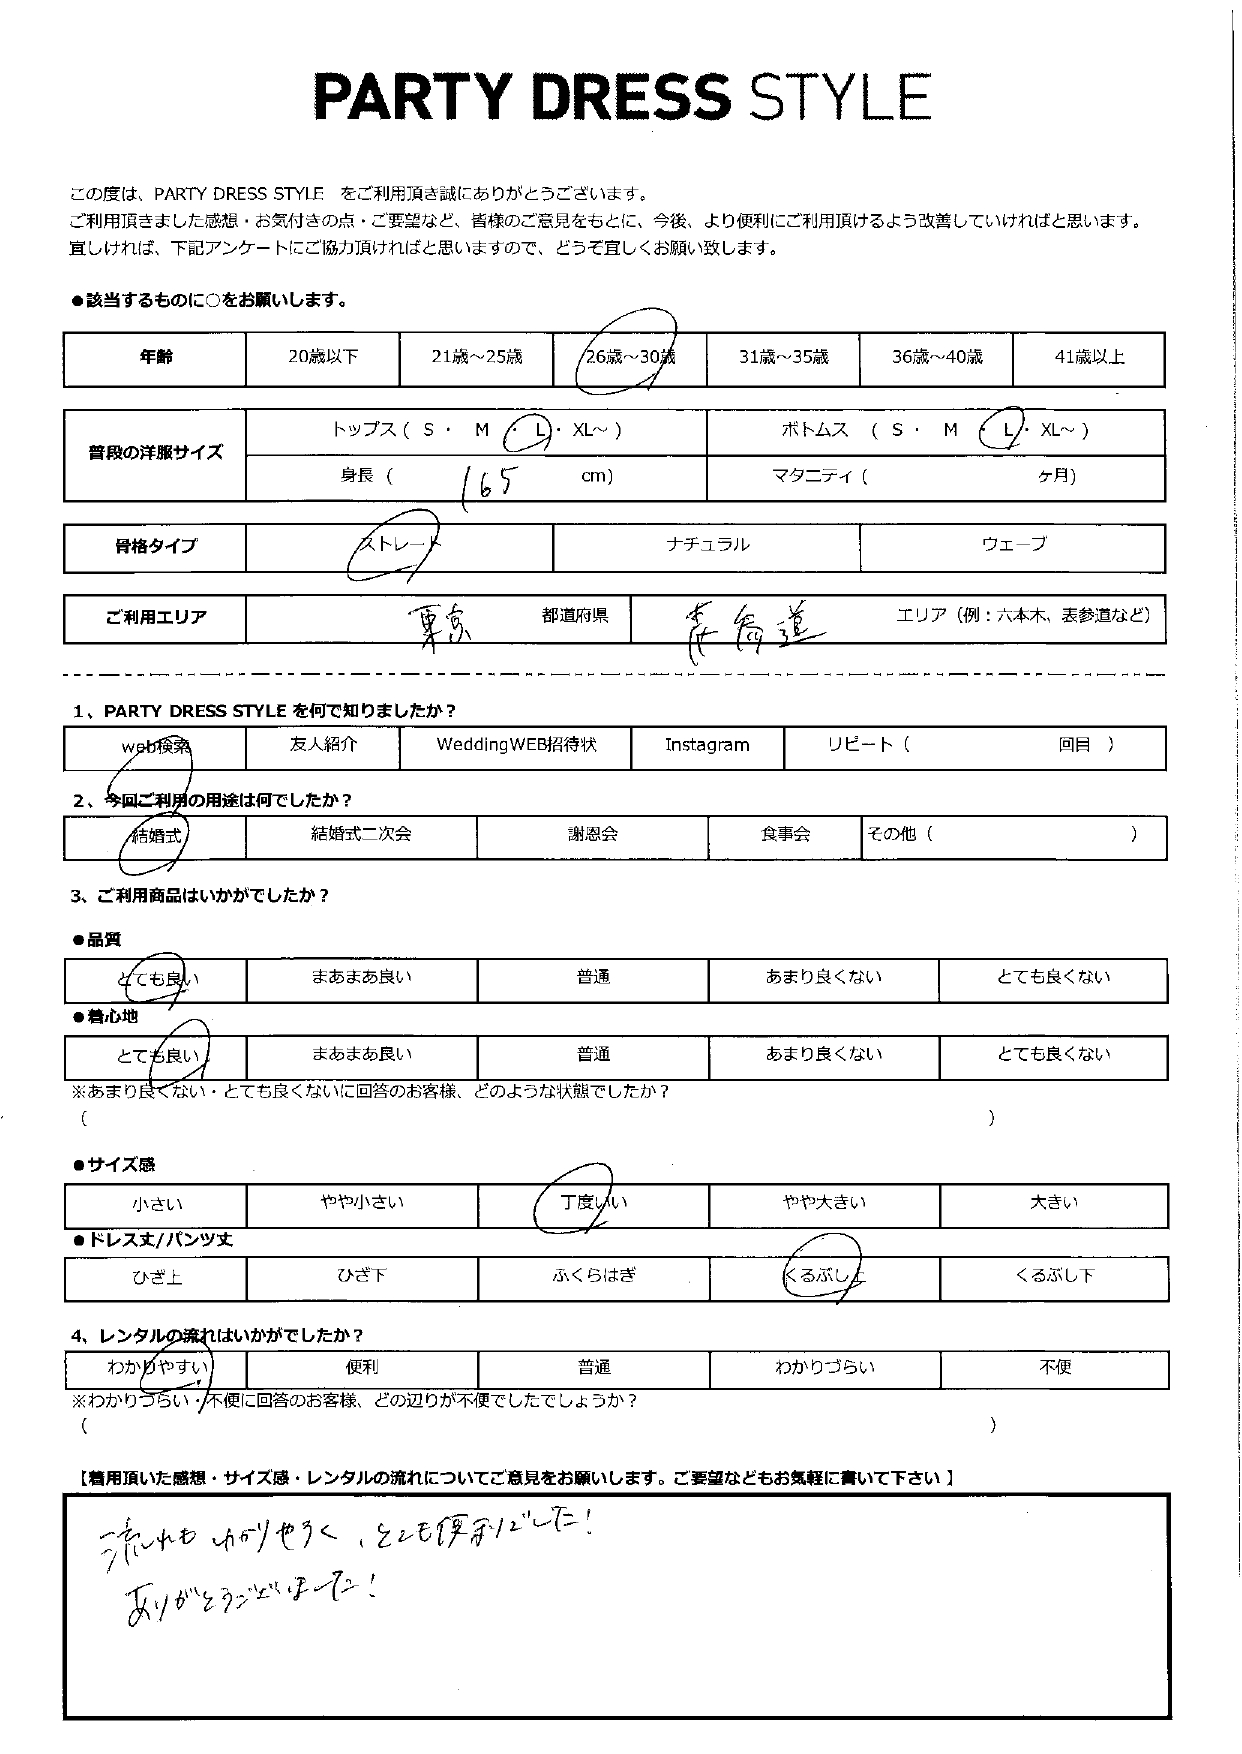 PARTY DRESS STYLE
この度は、PARTY DRESS STYLE をご利用頂き誠にありがとうございます。
ご利用頂きました感想・お気付きの点・ご要望など、皆様のご意見をもとに、今後、より便利にご利用頂けるよう改善していければと思います。
宜しければ、下記アンケートにご協力頂ければと思いますので、どうぞ宜しくお願い致します。
●該当するものに○をお願いします。
年齢 20歳以下 21歳～25歳 26歳～30歳 31歳～35歳 36歳～40歳 41歳以上
普段の洋服サイズ トップス ( S ・ M ・ L ・ XL～ ) ボトムス ( S ・ M ・ L ・ XL～ )
身長 ( 165 cm) マタニティ ( ヶ月)
骨格タイプ ストレート ナチュラル ウェーブ
ご利用エリア 東京 都道府県 表参道 エリア（例：六本木、表参道など）
1、PARTY DRESS STYLE を何で知りましたか？
web検索 友人紹介 WeddingWEB招待状 Instagram リピート（ 回目 ）
2、今回ご利用の用途は何でしたか？
結婚式 結婚式二次会 謝恩会 食事会 その他（ ）
3、ご利用商品はいかがでしたか？
●品質
とても良い まあまあ良い 普通 あまり良くない とても良くない
●着心地
とても良い まあまあ良い 普通 あまり良くない とても良くない
※あまり良くない・とても良くないに回答のお客様、どのような状態でしたか？
（ ）
●サイズ感
小さい やや小さい 丁度いい やや大きい 大きい
●ドレス丈/パンツ丈
ひざ上 ひざ下 ふくらはぎ くるぶし上 くるぶし下
4、レンタルの流れはいかがでしたか？
わかりやすい 便利 普通 わかりづらい 不便
※わかりづらい・不便に回答のお客様、どの辺りが不便でしたでしょうか？
（ ）
【着用頂いた感想・サイズ感・レンタルの流れについてご意見をお願いします。ご要望などもお気軽に書いて下さい】
流れもわかりやすく、とても便利でした！
ありがとうございました！